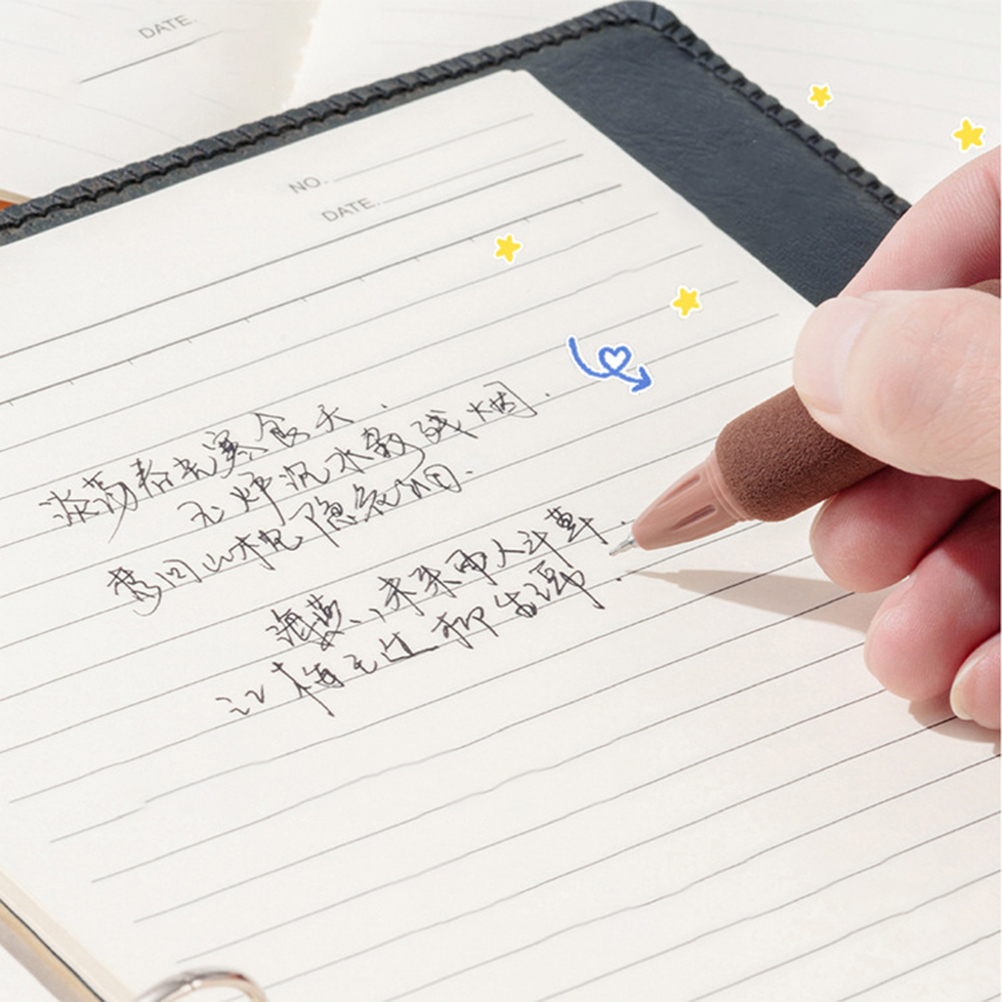 DATE.
NO.
DATE.
淡荡春光寒食天.
玉炉沉水袅残烟.
梦回山枕隐花钿.
海燕、未来人斗草.
江梅已过柳生绵.